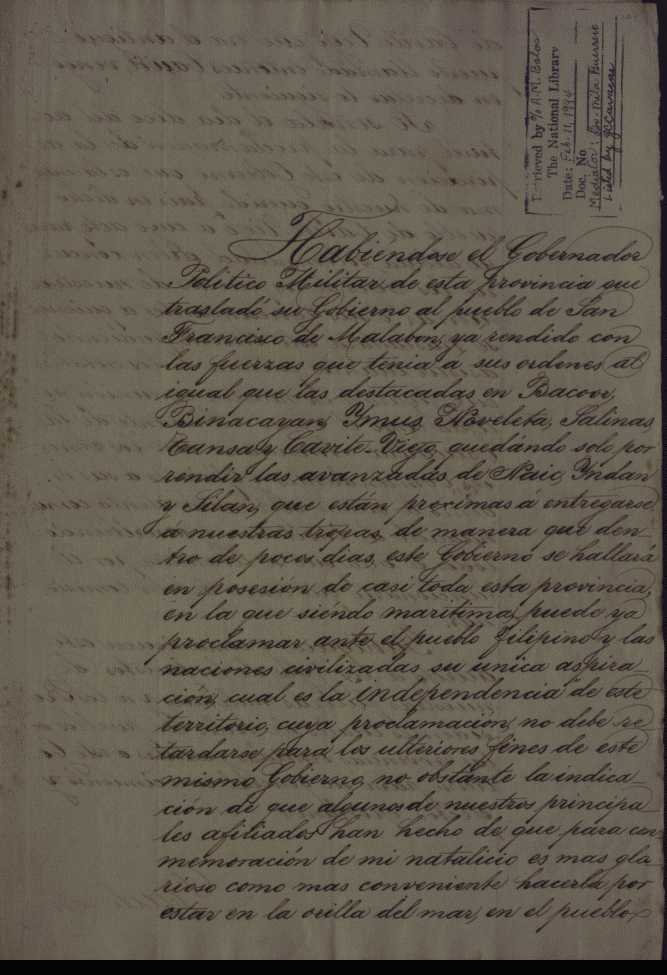 Retrieved by % A.M. Bolos
The National Library
Date: Feb. 11, 1994
Doc. No
Mediator:
Listed by
Habiendose el Gobernador
Politico Militar de esta provincia que
trasladó su Gobierno al pueblo de San
Francisco de Malabon, ya rendido con
las fuerzas que tenia á sus ordenes al
igual que las destacadas en Bacoor,
Binacayan, Ymus, Noveleta, Salinas
Tansa y Cavite-Viejo, quedándo solo por
rendir las avanzadas de Naic, Yndan
y Silan, que están proximas á entregarse
á nuestras tropas, de manera que den-
tro de pocos dias, este Gobierno se hallará
en posesión de casi toda esta provincia,
en la que siéndo maritima, puede ya
proclamar ante el pueblo filipino y las
naciones civilizadas su unica aspira-
ción, cual es la "independencia" de este
territorio, cuya proclamación, no debe re-
tardarse para los ulteriores fines de este
mismo Gobierno, no obstánte la indica-
ción de que algunos de nuestros principa-
les afiliados han hecho de que para con-
memoración de mi natalicio es mas glo-
rioso como mas conveniente hacerla por
estar en la orilla del mar, en el pueblo